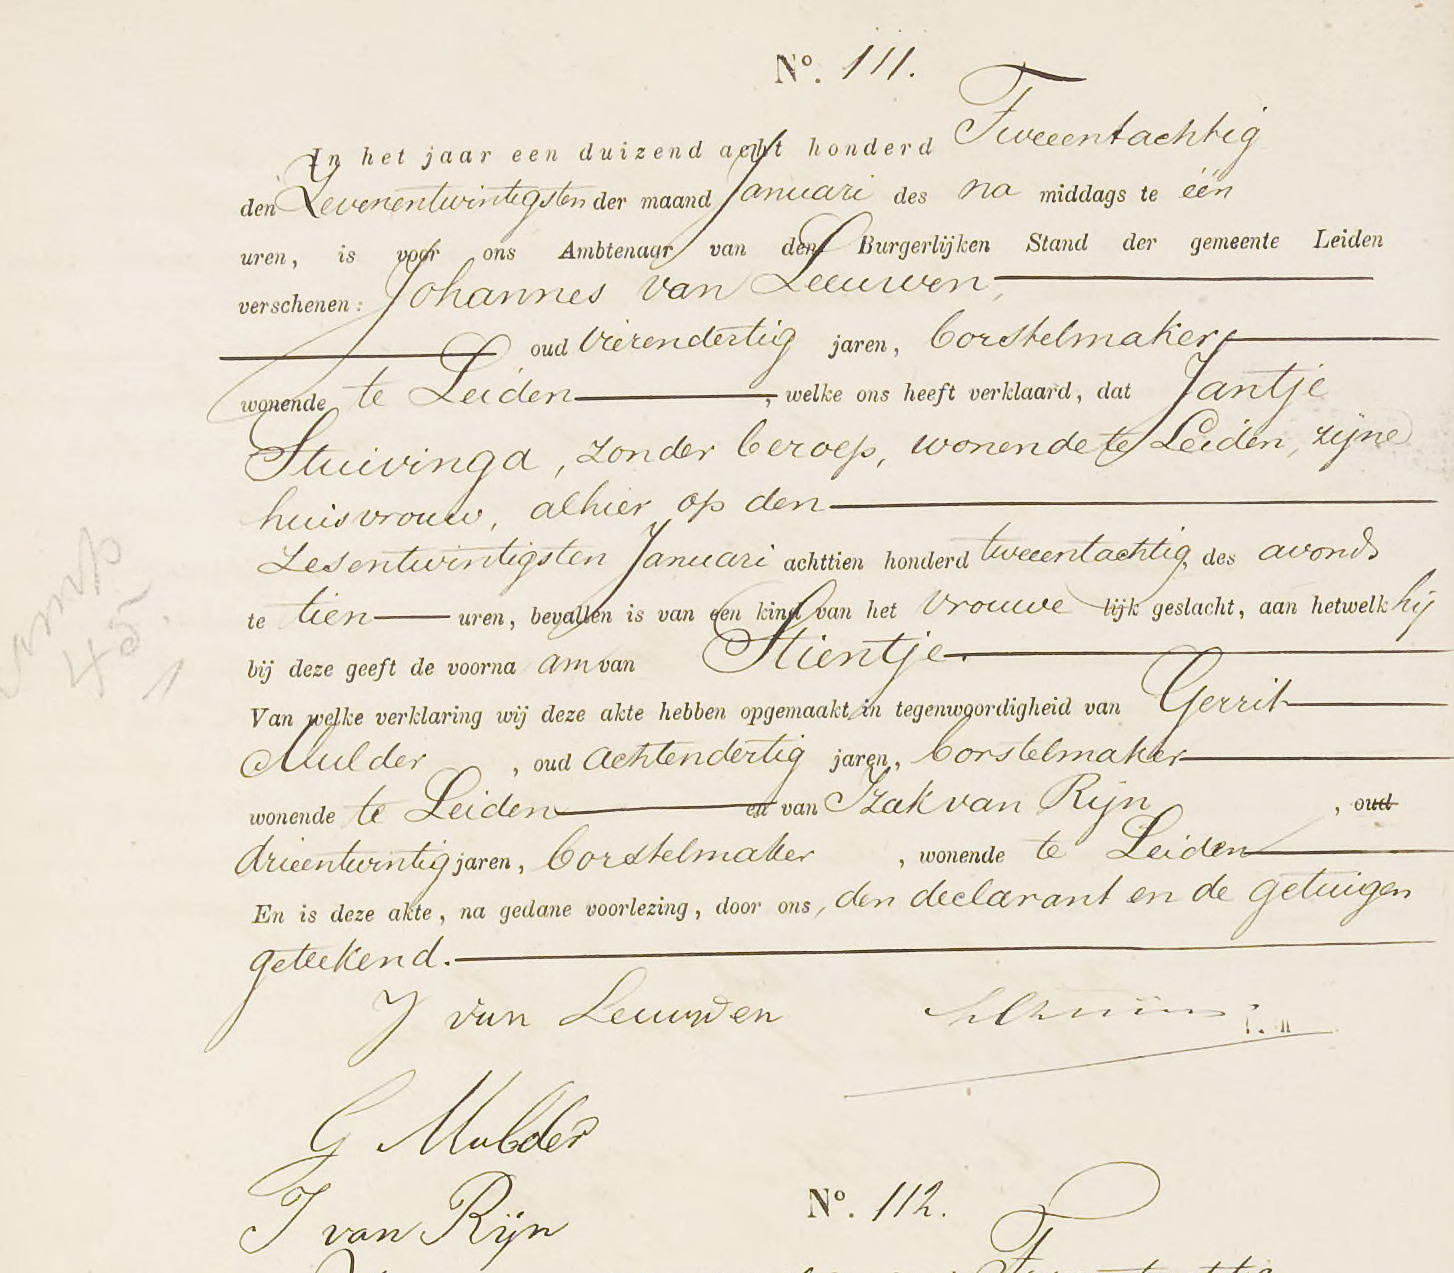 Nº. 111.
In het jaar een duizend acht honderd Tweeentachtig
den Zevenentwintigsten der maand Januari des na middags te één
uren, is voor ons Ambtenaar van den Burgerlijken Stand der gemeente Leiden
verschenen: Johannes van Leeuwen,
oud vierendertig jaren, borstelmaker,
wonende te Leiden, welke ons heeft verklaard, dat Jantje
Stuivinga, zonder beroep, wonende te Leiden, zijne
huisvrouw, alhier op den
zesentwintigsten Januari achttien honderd tweeentachtig, des avonds
te tien uren, bevallen is van een kind van het vrouwe lijk geslacht, aan hetwelk hij
bij deze geeft de voorna am van Stientje.
Van welke verklaring wij deze akte hebben opgemaakt, in tegenwoordigheid van Gerrit
Mulder, oud achtendertig jaren, borstelmaker
wonende te Leiden en van Izak van Rijn, oud
drieentwintig jaren, borstelmaker, wonende te Leiden
En is deze akte, na gedane voorlezing, door ons, den declarant en de getuigen
geteekend.
J van Leeuwen
G Mulder
J van Rijn
Nº. 112.